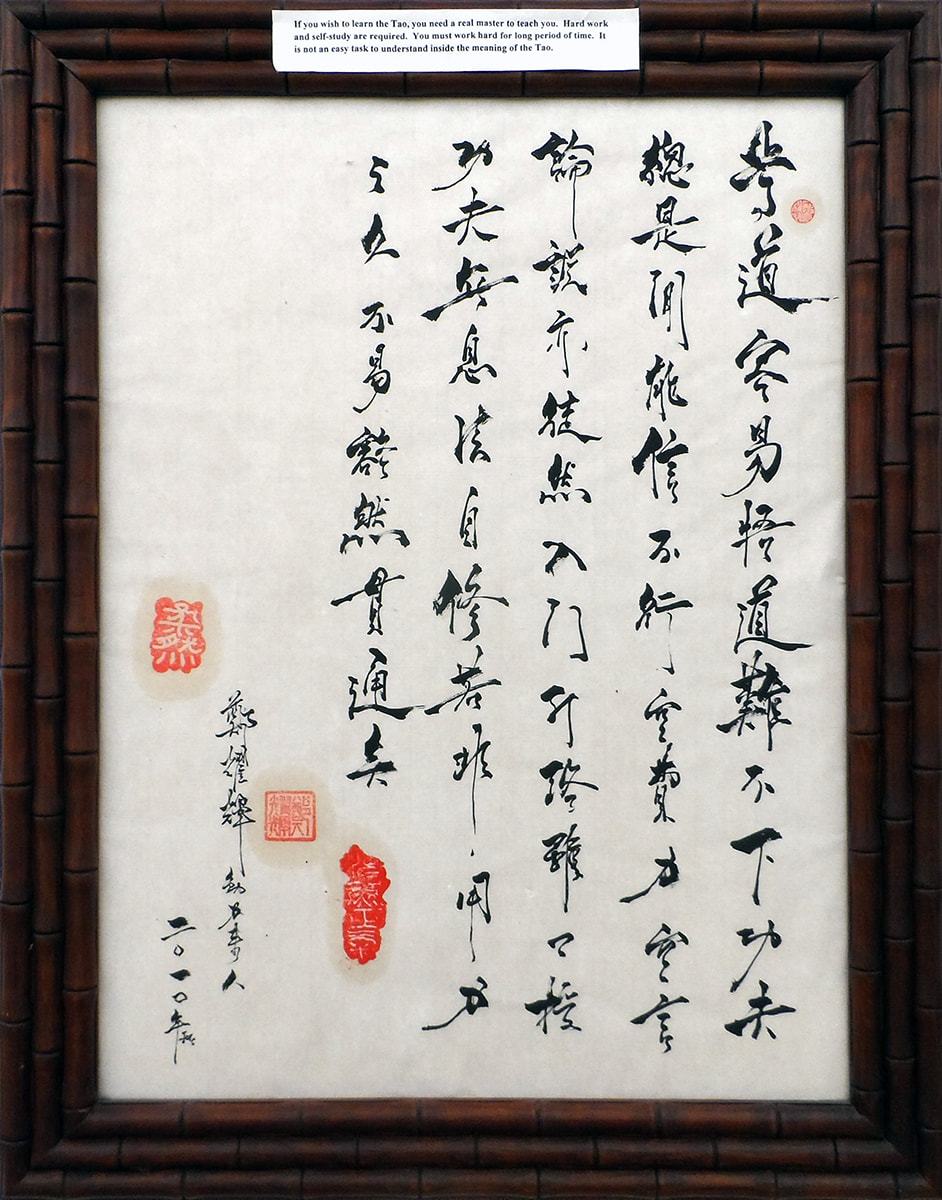 If you wish to learn the Tao, you need a real master to teach you. Hard work
and self-study are required. You must work hard for long period of time. It
is not an easy task to understand inside the meaning of the Tao.
學道容易悟道難不下功夫
總是閒能信不行空費力空言
論說亦徒然入門引路雖口授
功夫無息法自修若非用力
之久不易豁然貫通矣
鄭耀輝
二〇一〇年秋
柔然